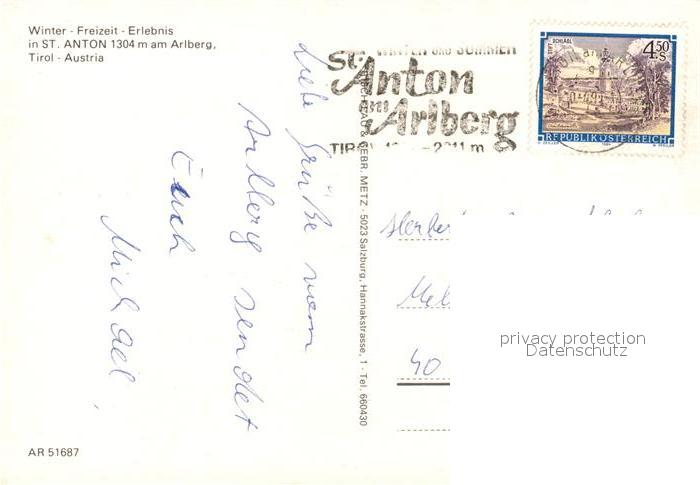 Winter - Freizeit - Erlebnis
in ST. ANTON 1304 m am Arlberg,
Tirol - Austria
Liebe Grüße vom
Arlberg sendet
Euch
Michael.
AR 51687
GEBR. METZ · 5023 Salzburg, Hannakstrasse, 1 · Tel. 660430
WINTER UND SOMMER
St. Anton
am Arlberg
TIROL
2811 m
STIFT SCHLÄGL
4.50 S
REPUBLIK ÖSTERREICH
40
privacy protection
Datenschutz